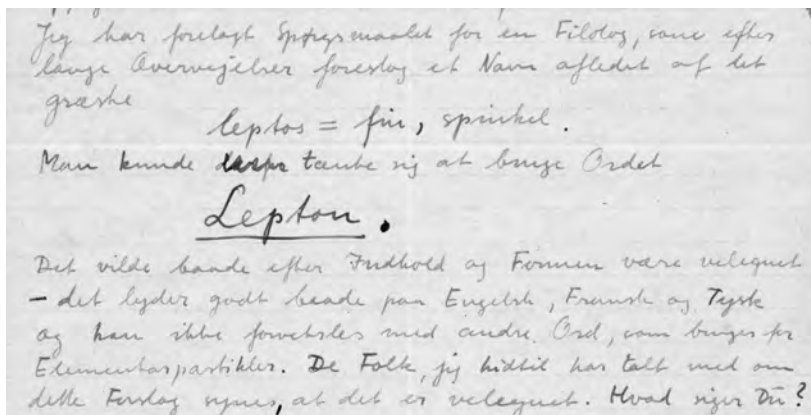 Jeg har forelagt Spørgsmaalet for en Filolog, som efter
lange Overvejelser foreslog et Navn afledet af det
græske
leptos = fin, spinkel.
Man kunde derfor tænke sig at bruge Ordet
Lepton.
Det vilde baade efter Indhold og Formen være velegnet
– det lyder godt baade paa Engelsk, Fransk og Tysk
og kan ikke forveksles med andre Ord, som bruges for
Elementarpartikler. De Folk, jeg hidtil har talt med om
dette Forslag synes, at det er velegnet. Hvad siger Du?